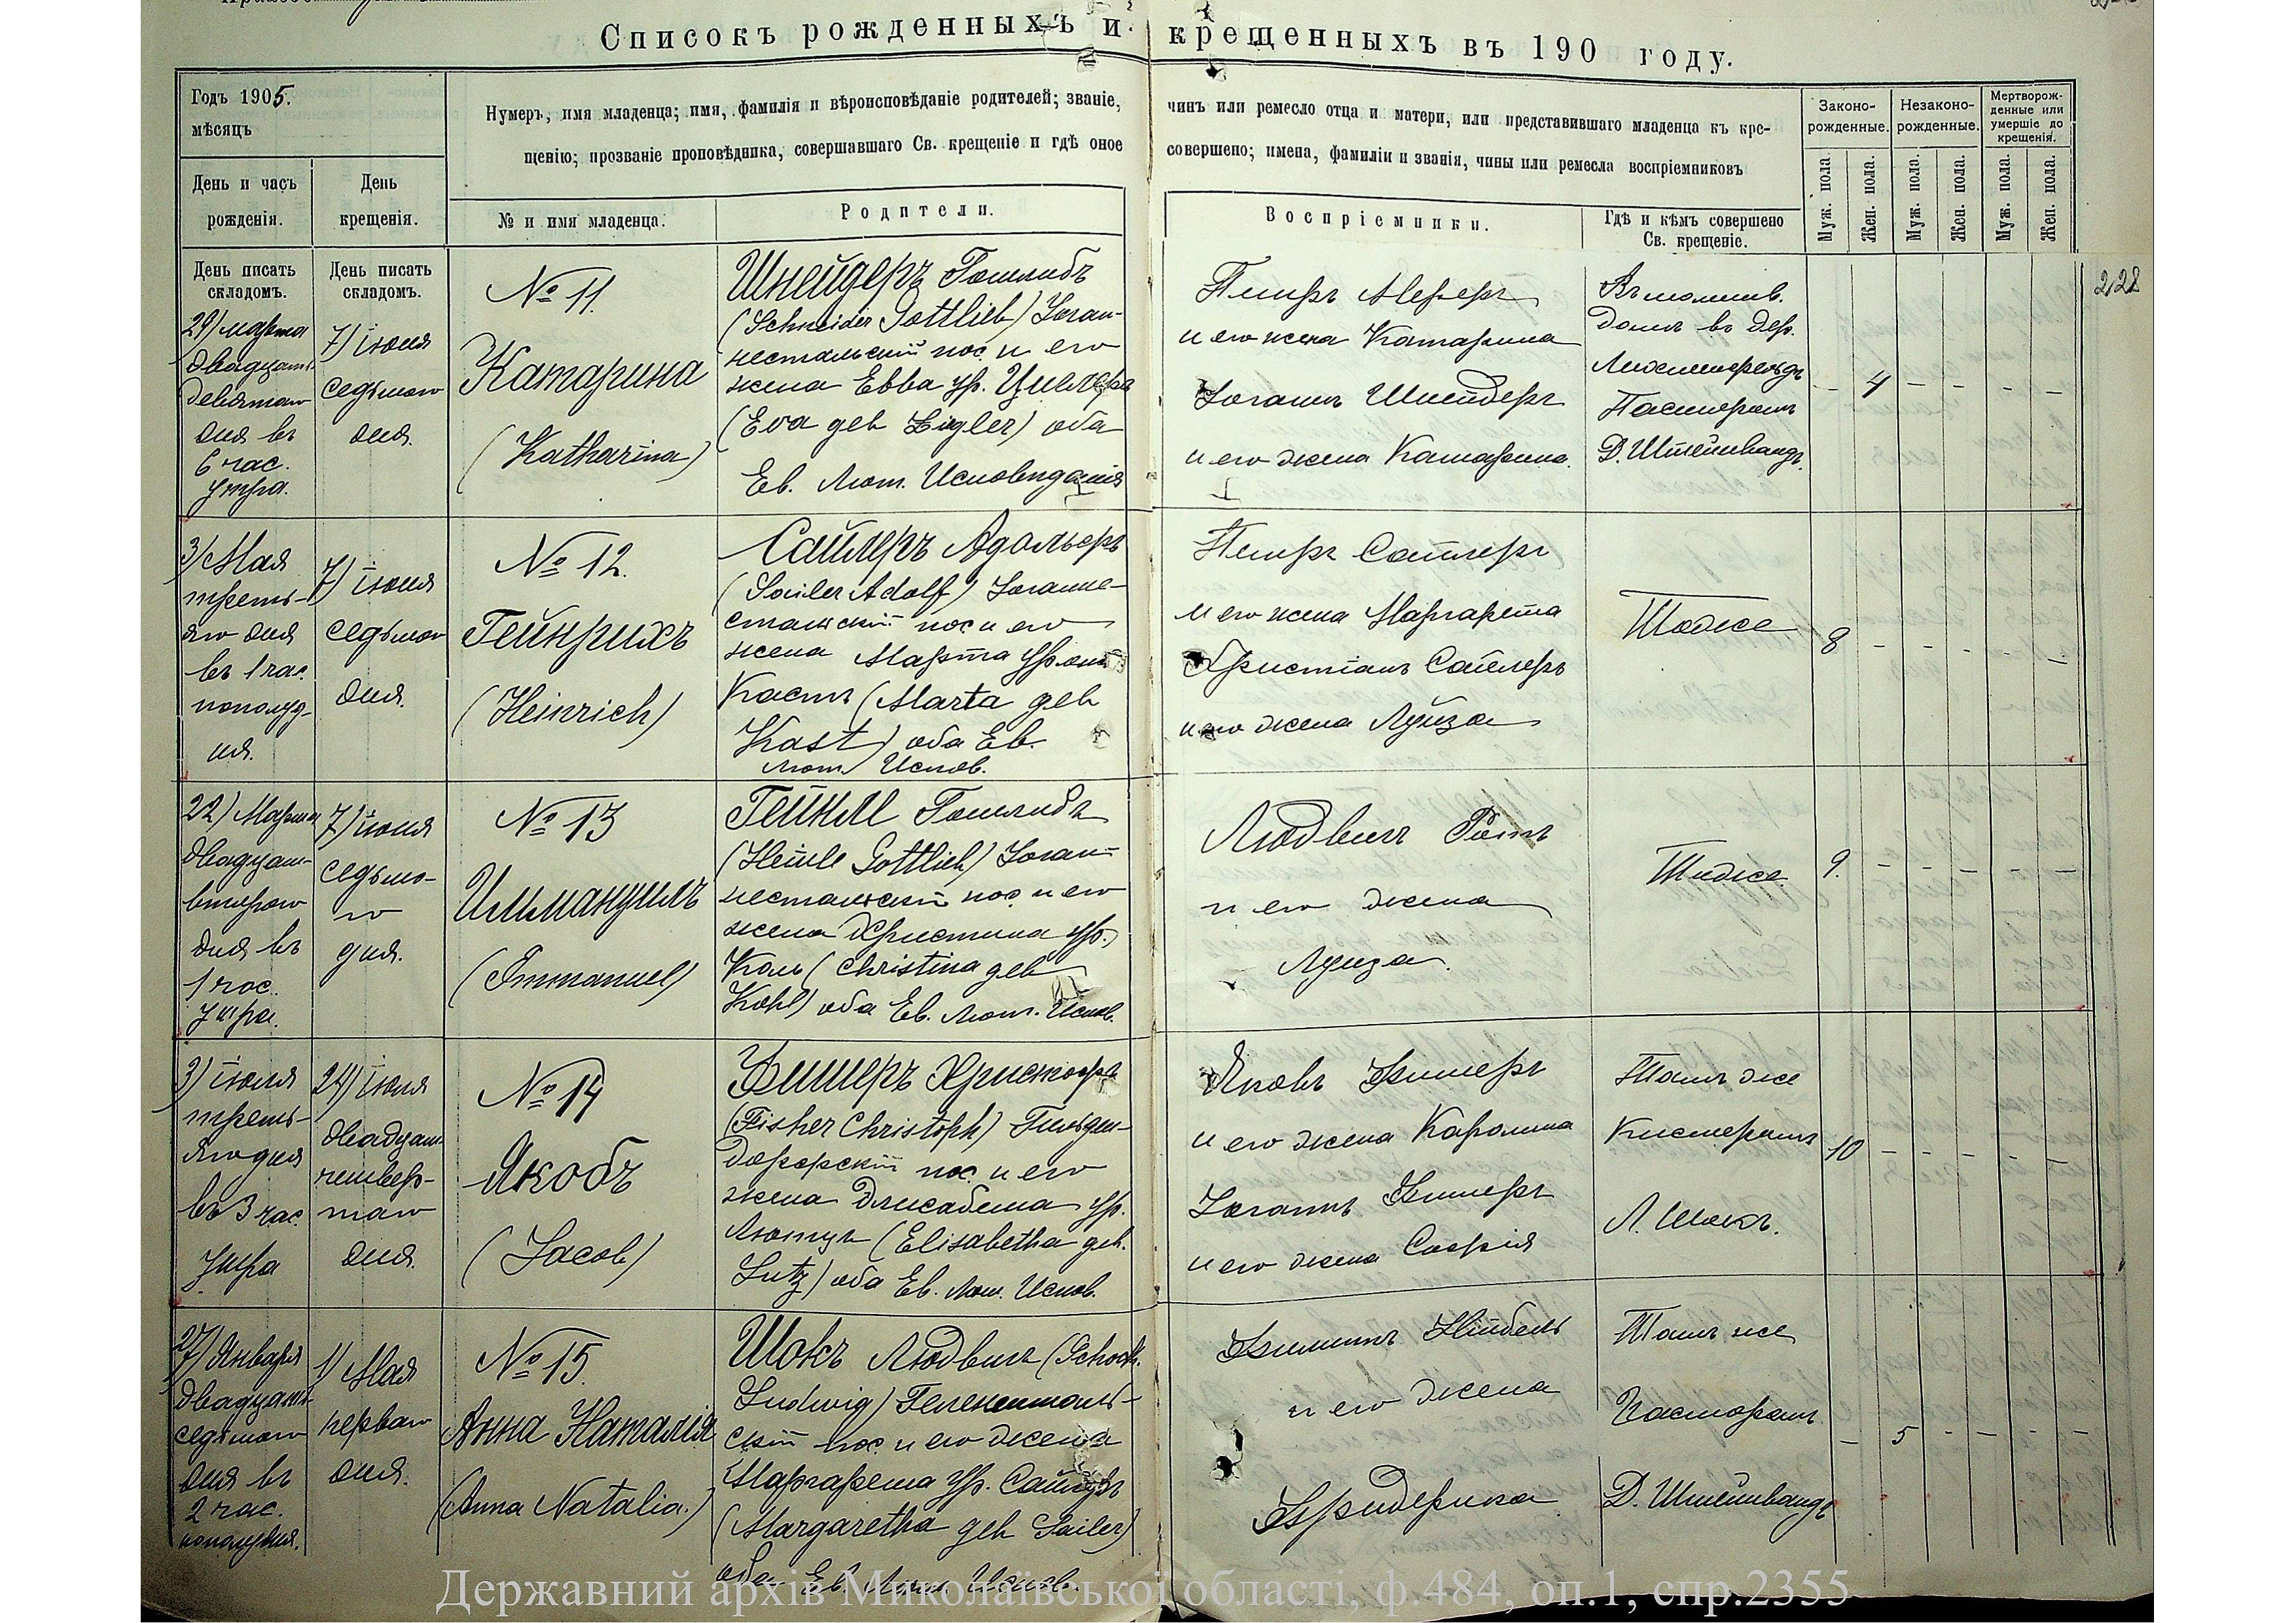 Списокъ рожденныхъ и крещенныхъ въ 190 году.
Годъ 1905.
мѣсяцъ
Нумеръ, имя младенца; имя, фамилія и вѣроисповѣданіе родителей; званіе, чинъ или ремесло отца и матери, или представившаго младенца къ кре-
щенію; прозваніе проповѣдника, совершавшаго Св. крещеніе и гдѣ оное совершено; имена, фамиліи и званія, чины или ремесла воспріемниковъ
Законо-
рожденные.
Незаконо-
рожденные.
Мертворож-
денные или
умершіе до
крещенія.
День и часъ
рожденія.
День
крещенія.
№ и имя младенца.
Родители.
Воспріемники.
Гдѣ и кѣмъ совершено
Св. крещеніе.
Муж. пола.
Жен. пола.
Муж. пола.
Жен. пола.
Муж. пола.
Жен. пола.
День писать
складомъ.
День писать
складомъ.
228
29) марта
двадцать
девятаго
дня въ
6 час.
утра.
7) іюня
седьмого
дня.
№ 11.
Катарина
(Katharina)
Шнейдеръ Готлибъ
(Schneider Gottlieb) Іоган-
нестальскій пос. и его
жена Евва ур. Циглеръ
(Eva geb Ziegler) оба
Ев. Лют. Исповѣданія
Петръ
и его жена Катарина
Іоганъ Шнейдеръ
и его жена Катарина.
Въ молитв.
домѣ въ дер.
Лихтенфельдъ
Пасторомъ
Д. Штейнвандъ.
– 4 – – – –
3) Мая
треть-
яго дня
въ 1 час.
пополуд-
ня.
7) іюня
седьмого
дня.
№ 12.
Гейнрихъ
(Heinrich)
Сайлеръ Адольфъ
(Sailer Adolf) Іоганне-
стальскій пос. и его
жена Марта урожд.
Кастъ (Marta geb
Kast) оба Ев.
Лют. Испов.
Петръ Сайлеръ
и его жена Маргарета
Христіанъ Сайлеръ
и его жена Луиза
Тоже
8 – – – – –
22) Марта
двадцать
второго
дня въ
1 час.
утра.
7) іюня
седьмо-
го
дня.
№ 13
Иммануилъ
(Immanuel)
Гейнле Готлибъ
(Heinle Gottlieb) Іоган-
нестальскій пос. и его
жена Христина ур.
Коль (Christina geb
Kohl) оба Ев. Лют. Испов.
Людвигъ Ротъ
и его жена
Луиза.
Тоже
9. – – – – –
3) іюля
треть-
яго дня
въ 3 час.
утра
24) іюля
двадцать
четвер-
таго
дня.
№ 14
Якобъ
(Jacob)
Фишеръ Христофъ
(Fisher Christoph) Гильден-
дорфскій пос. и его
жена Элисабета ур.
Лютцъ (Elisabetha geb.
Lutz) оба Ев. Лют. Испов.
Яковъ Фишеръ
и его жена Каролина
Іоганъ Фишеръ
и его жена Софія
Тамъ же
Кистеромъ
Л. Шокъ.
10 – – – – –
27) Января
двадцать
седьмого
дня въ
2 час.
пополудня.
1) Мая
перваго
дня.
№ 15.
Анна Наталія
(Anna Natalia.)
Шокъ Людвигъ (Schock
Ludwig) Геленентал-
скій пос. и его жена
Маргарета ур. Сайлеръ
(Margaretha geb Sailer)
оба Ев. Лют. Испов.
Филиппъ
и его жена
Фридерика
Тамъ же
Пасторомъ
Д. Штейнвандъ
– 5 – – – –
Державний архів Миколаївської області, ф.484, оп.1, спр.2355